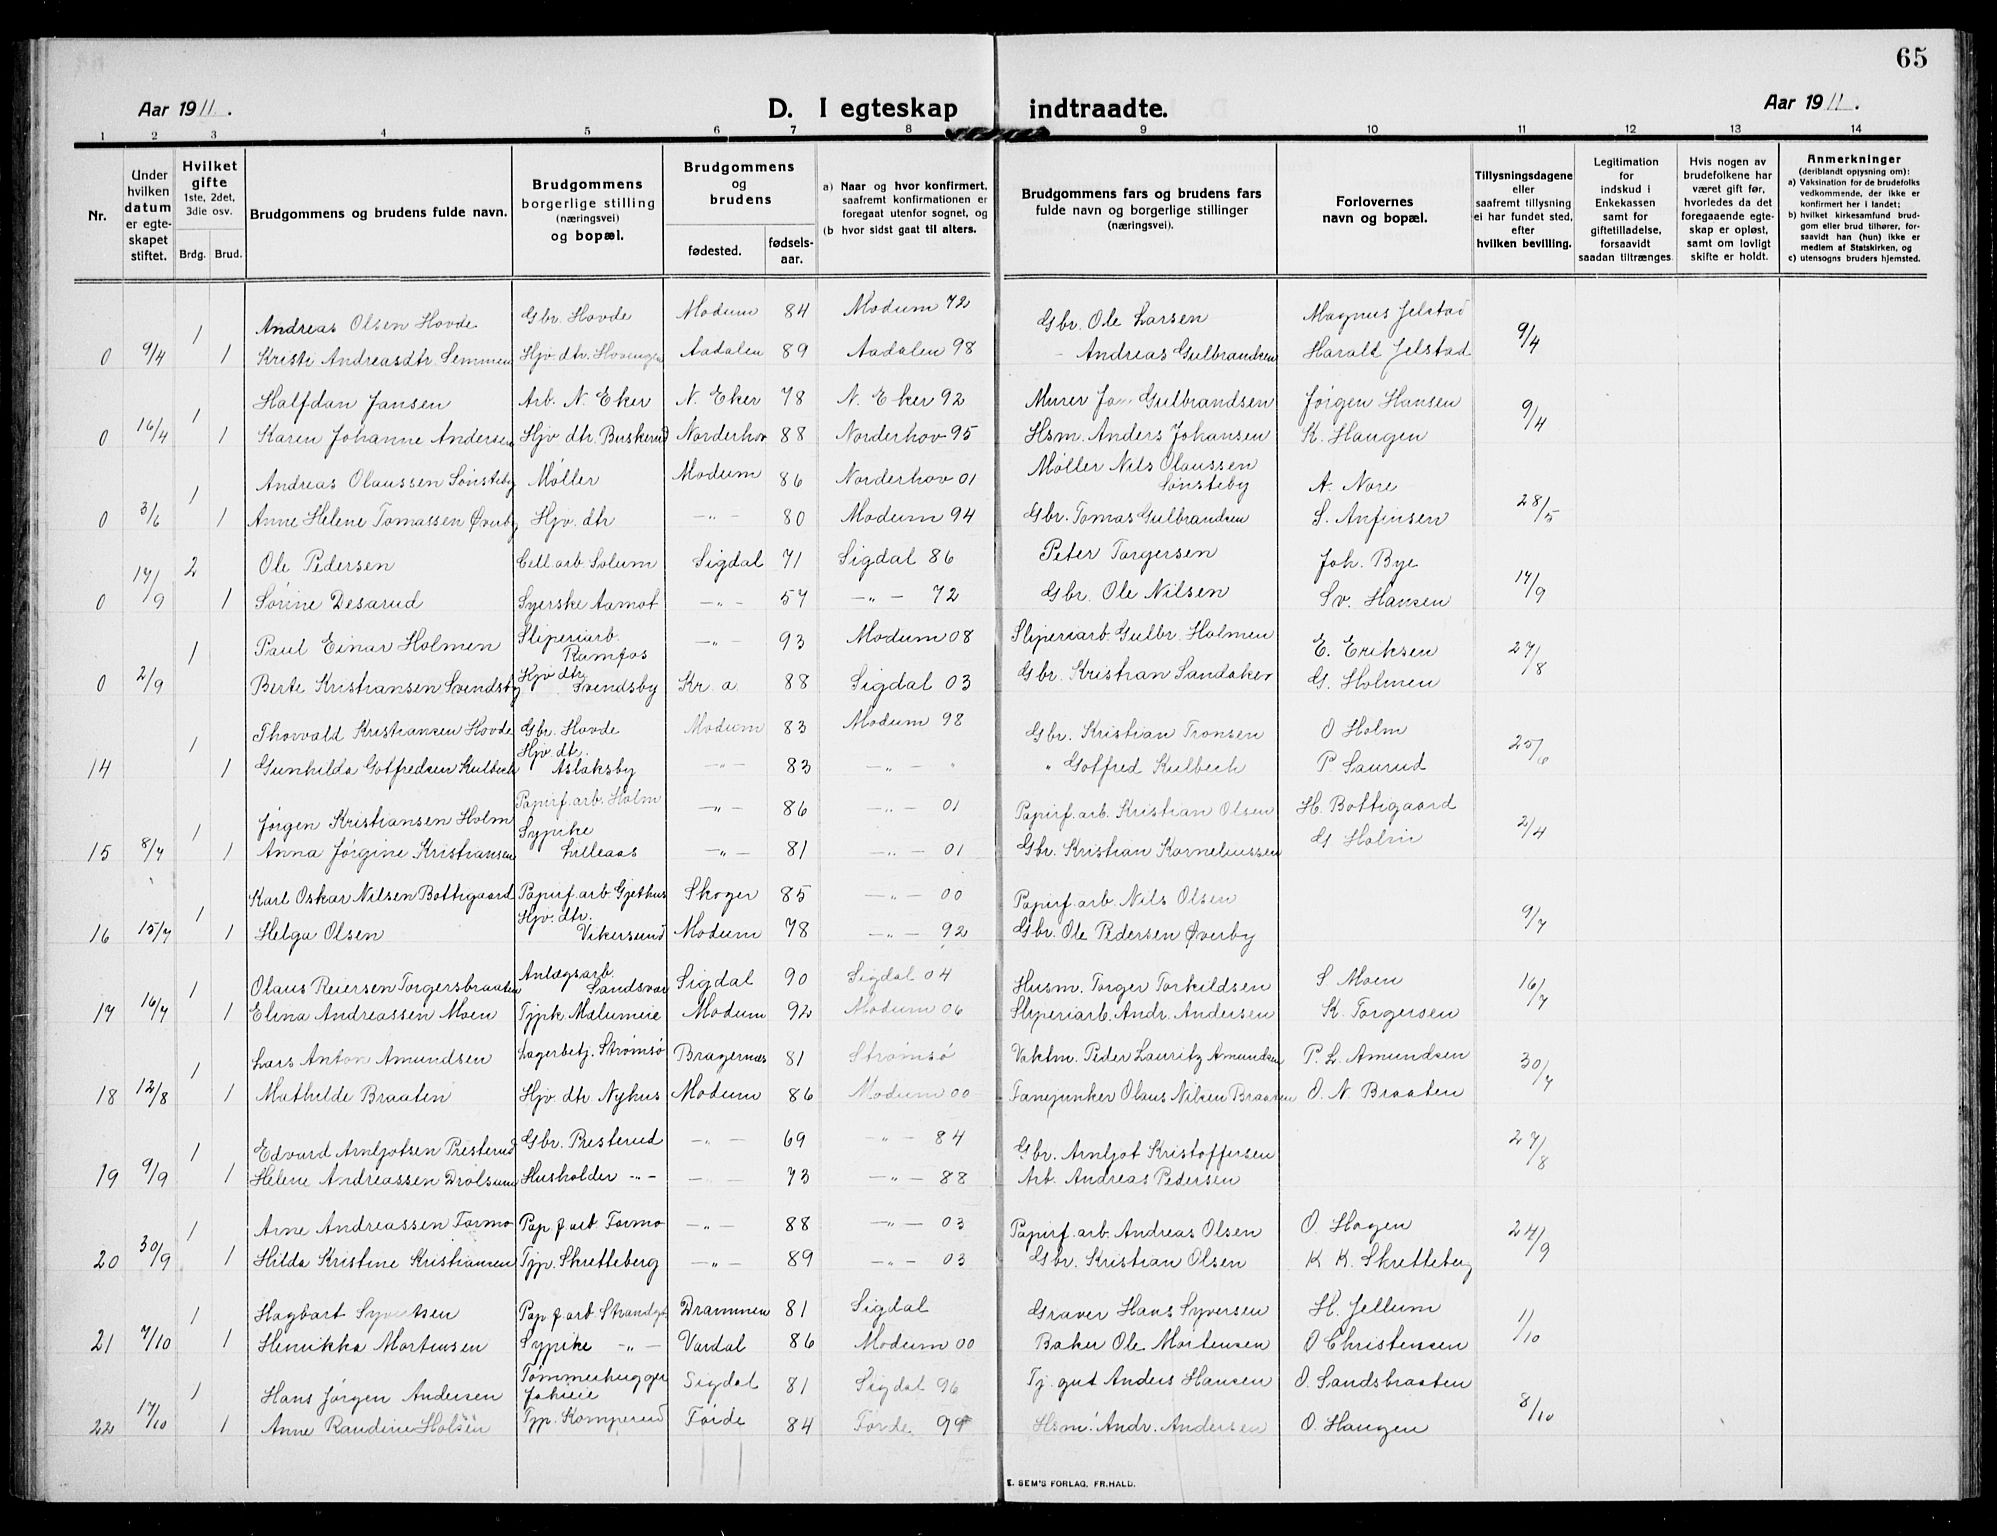 65
Aar 1911.
D. I egteskap indtraadte.
Aar 1911.
1 2 3 4 5 6 7 8 9 10 11 12 13 14
Nr.
Under hvilken datum er egteskapet stiftet.
Hvilket gifte 1ste, 2det, 3die osv.
Brdg. Brud.
Brudgommens og brudens fulde navn.
Brudgommens borgerlige stilling (næringsvei) og bopæl.
Brudgommens og brudens
fødested. fødselsaar.
a) Naar og hvor konfirmert, saafremt konfirmationen er foregaat utenfor sognet, og
(b hvor sidst gaat til alters.
Brudgommens fars og brudens fars fulde navn og borgerlige stillinger (næringsvei).
Forlovernes navn og bopæl.
Tillysningsdagene eller saafremt tillysning ei har fundet sted, efter hvilken bevilling.
Legitimation for indskud i Enkekassen samt for giftetilladelse, forsaavidt saadan tiltrænges.
Hvis nogen av brudefolkene har været gift før, hvorledes da det foregaaende egteskap er opløst, samt om lovligt skifte er holdt.
Anmerkninger (deriblandt opjysning om):
a) Vaksination for de brudefolks vedkommende, der ikke er konfirmert her i landet;
b) hvilket kirkesamfund brudgom eller brud tilhører, forsaavidt han (hun) ikke er medlem af Statskirken, og
c) utensogns bruders hjemsted.
1 Andreas Olsen Hovde Gbr. Hovde Modum 84 Modum 72 Gbr. Ole Larsen Magnus Jelstad
0 9/4 1 Kristi Andreasdtr. Semmen Hjv. dtr. Aadalen 89 Aadalen 98 - Andreas Gulbrandsen Harald Jelstad 9/4
1 Halfdan Jansen Arb. N. Eker N. Eker 78 N. Eker 92 Murer Gulbrandsen Jørgen Hansen
0 16/4 1 Karen Johanne Andersen Hjv dtr. Buskerud Norderhov 88 Norderhov 95 Hsm. Anders Johansen K. Haugen 9/4
1 Andreas Olaussen Sønsteby Møller Modum 86 Norderhov 01 Møller Nils Olaussen Sønsteby A. Nore
0 3/6 1 Anne Helene Tomassen Øverby Hjv. dtr -"- 80 Modum 94 Gbr. Tomas Gulbrandsen S. Anfinsen 28/5
2 Ole Pedersen Cell. arb. Solum Sigdal 71 Sigdal 86 Peter Torgersen Joh. Bye
0 17/9 1 Sørine Desarud Syerske Aamot -"- 57 -"- 72 Gbr. Ole Nilsen Sv. Hansen 17/9
1 Paul Einar Holmen Sliperiarb. Ramfos -"- 93 Modum 08 Sliperiarb. Gulbr. Holmen E. Eriksen
0 2/9 1 Berte Kristiansen Svendsby Hjv dtr. Svendsby Kr. a. 88 Sigdal 03 Gbr. Kristian Sandaker G. Holmen 27/8
1 Thorvald Kristiansen Hovde Gbr. Hovde Modum 83 Modum 98 Gbr. Kristian Tronsen O Holm
14 1 Gunhilda Gotfredsen Kulbech Hjv dtr. Aslaksby -"- 83 -"- " " Gotfred Kulbech P. Saurud 25/6
1 Jørgen Kristiansen Holm Papirf. arb. Holm -"- 86 -"- 01 Papirf. arb. Kristian Olsen H. Bottigaard
15 8/7 1 Anna Jørgine Kristiansen Sypike Lilleaas -"- 81 -"- 01 Gbr. Kristian Korneliussen G Holm 2/4
1 Karl Oskar Nilsen Bottigaard Papirf. arb Gjethus Skoger 85 -"- 00 Papirf. arb. Nils Olsen
16 15/7 1 Helga Olsen Hjv. dtr. Vikersund Modum 78 -"- 92 Gbr. Ole Pedersen Øverby 9/7
1 Olaus Reiersen Torgersbraaten Anlægsarb. Sandsvær Sigdal 90 Sigdal 04 Husm. Torger Torkildsen S Moen
17 16/7 1 Elina Andreassen Moen Tjpk. Modum 92 Modum 06 Sliperiarb. Andr. Andersen K. Torgersen 16/7
1 Lars Anton Amundsen Lagerbetj. Strømsø Bragernæs 81 Strømsø Vaktm. Peder Lauritz Amundsen P. L. Amundsen
18 12/8 1 Mathilde Braaten Hjv dtr Nyhus Modum 86 Modum 00 Fanejunker Olaus Nilsen Braaten O. N. Braaten 30/7
1 Edvard Arnljotsen Presterud Gbr. Presterud -"- 69 -"- 84 Gbr. Arnljot Kristoffersen
19 9/9 1 Helene Andreassen Drolsum Husholder -"- -"- 73 -"- 88 Arb. Andreas Pedersen 27/8
1 Arne Andreassen Formo Pap f arb Formo -"- 88 -"- 03 Papirf. arb. Andreas Olsen O. Hagen
20 30/9 1 Hilda Kristine Kristiansen Tjp. Skretteberg -"- 89 -"- 03 Gbr. Kristian Olsen K K. Skretteberg 24/9
1 Hagbart Syvertsen Pap f arb Drammen 81 Sigdal Graver Hans Syversen H. Jellum
21 7/10 1 Henrikka Mortensen Sypike -"- Vardal 86 Modum 00 Baker Ole Mortensen O Christensen 1/10
1 Hans Jørgen Andersen Tømmerhugger Sigdal 81 Sigdal 96 Tj. gut Anders Hansen O. Sandsbraaten
22 17/10 1 Anne Randine Holsen Tjp. Komperud Førde 84 Førde 99 Hsm. Andr. Andersen O. Haugen 8/10
E. SEM'S FORLAG. FR.HALD.